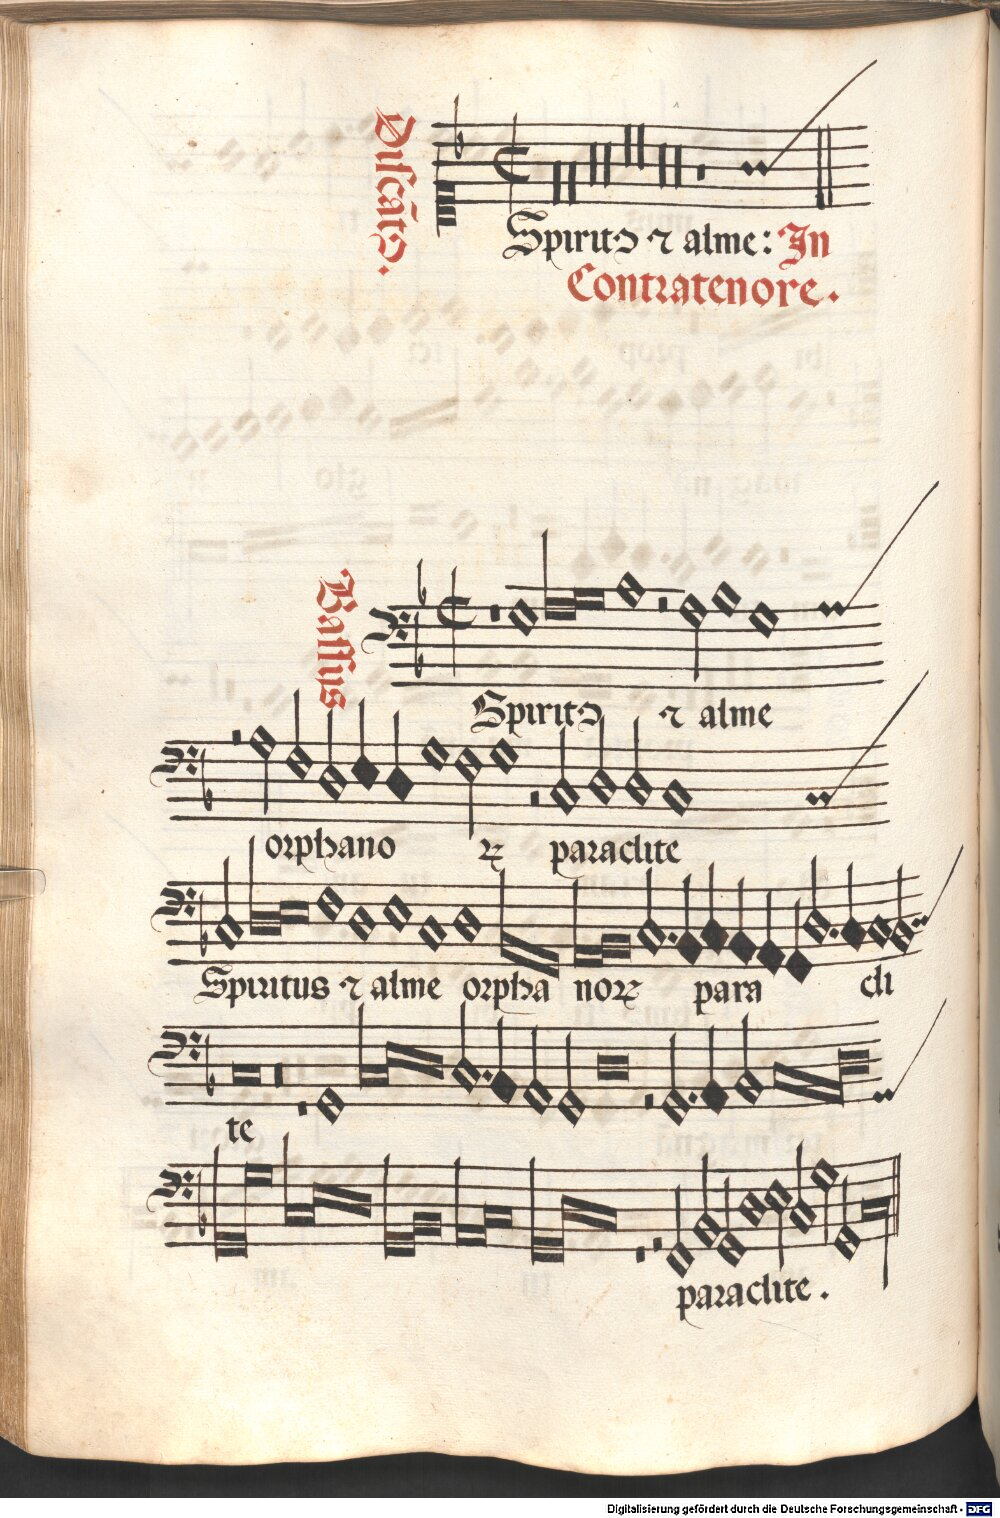 Discātꝰ.
Spiritꝰ ⁊ alme: In
Contratenore.
Bassus
Spiritꝰ ⁊ alme
orphano ꝝ paraclite
Spiritus ⁊ alme orpha noꝝ para cli
te
paraclite.
Digitalisierung gefördert durch die Deutsche Forschungsgemeinschaft - DFG